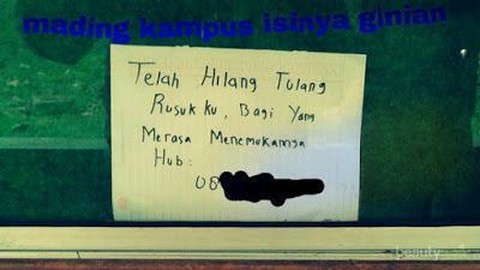 mading kampus isinya ginian
Telah Hilang Tulang
Rusuk ku, Bagi Yang
Merasa Menemukannya
Hub:
08
beauty